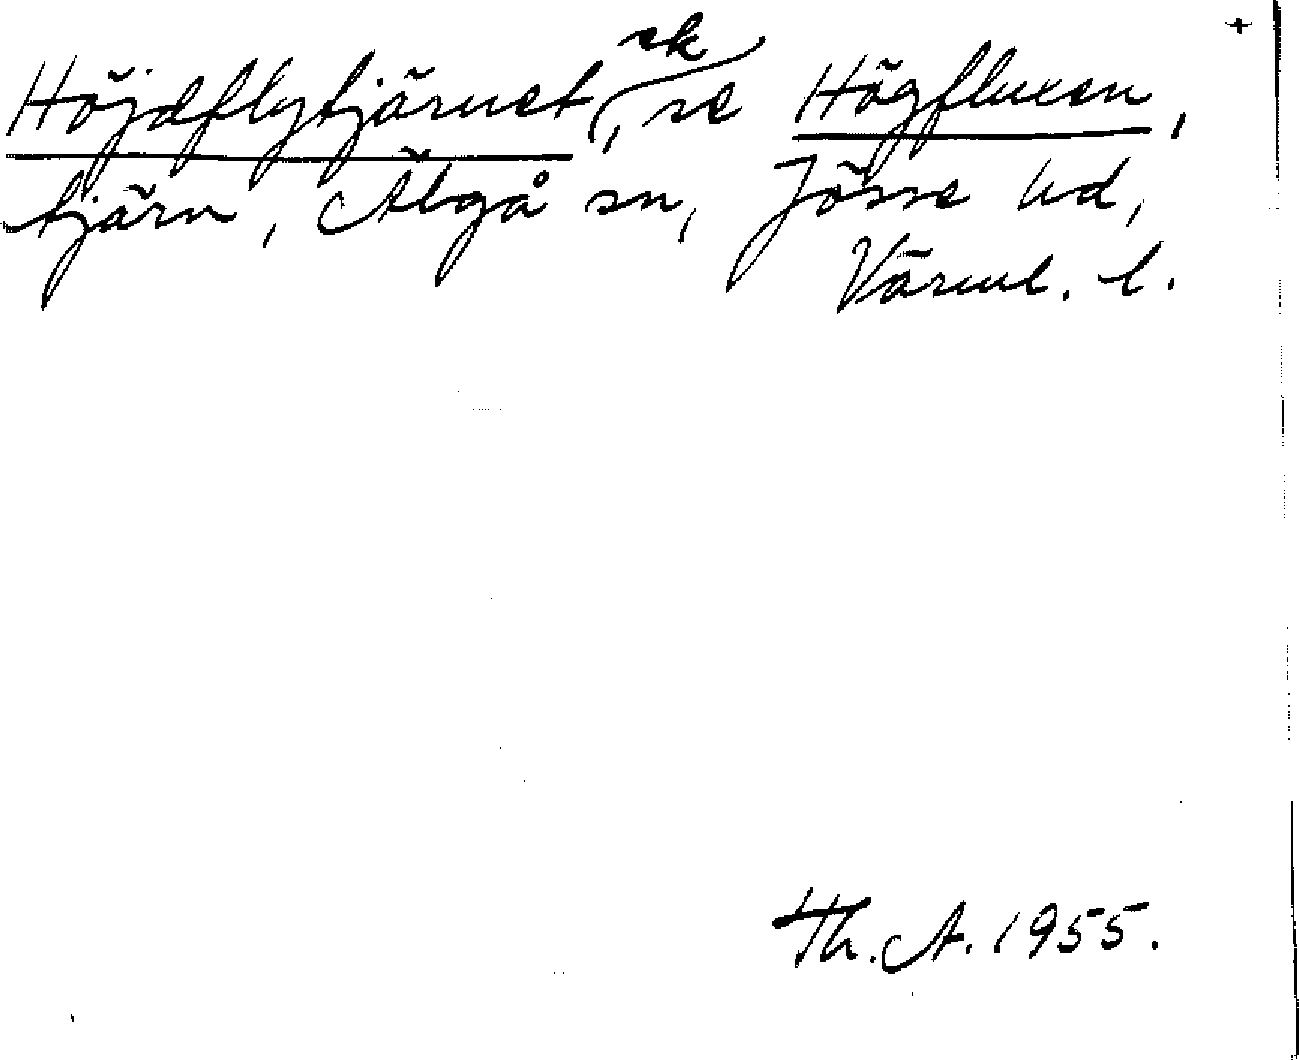 +
Höjdflytjärnet, ek se Högfluxen,
tjärn, Älgå sn, Jösse hd,
Värml. l.
Th. A. 1955.